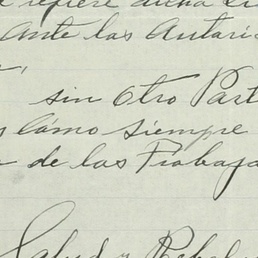 refiere dicha
Ante las Autori
sin Otro Part
cómo siempre
de las Trabaja
Salud y Rebel